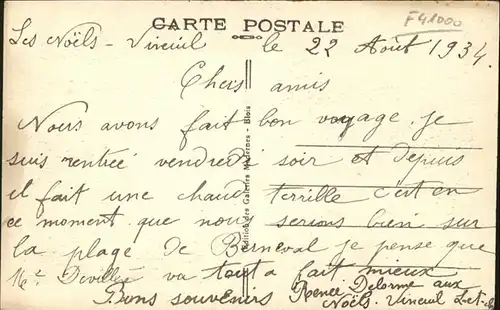 CARTE POSTALE
F41000
Les Noëls - Vineuil le 22 Août 1934.
Chers amis
Nous avons fait bon voyage. je
suis rentrée vendredi soir et depuis
il fait une chaud terrille c'est en
ce moment que nous serions bien sur
la plage de Berneval je pense que
Mr Devillié va tout a fait mieux
Bons souvenirs Renée Delorme aux
Noëls. Vineuil L-et-
Edition des Galeries Modernes - Blois